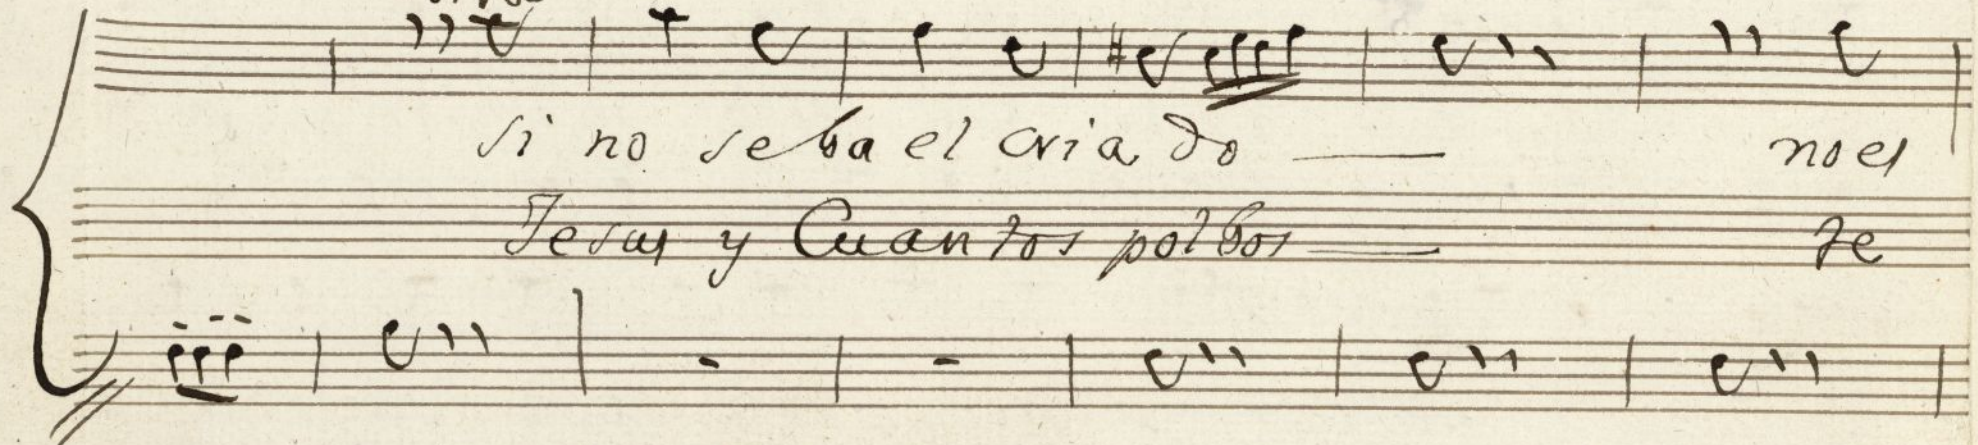 si no se ba el cria do — no es
Jesus y Cuantos polbos — te